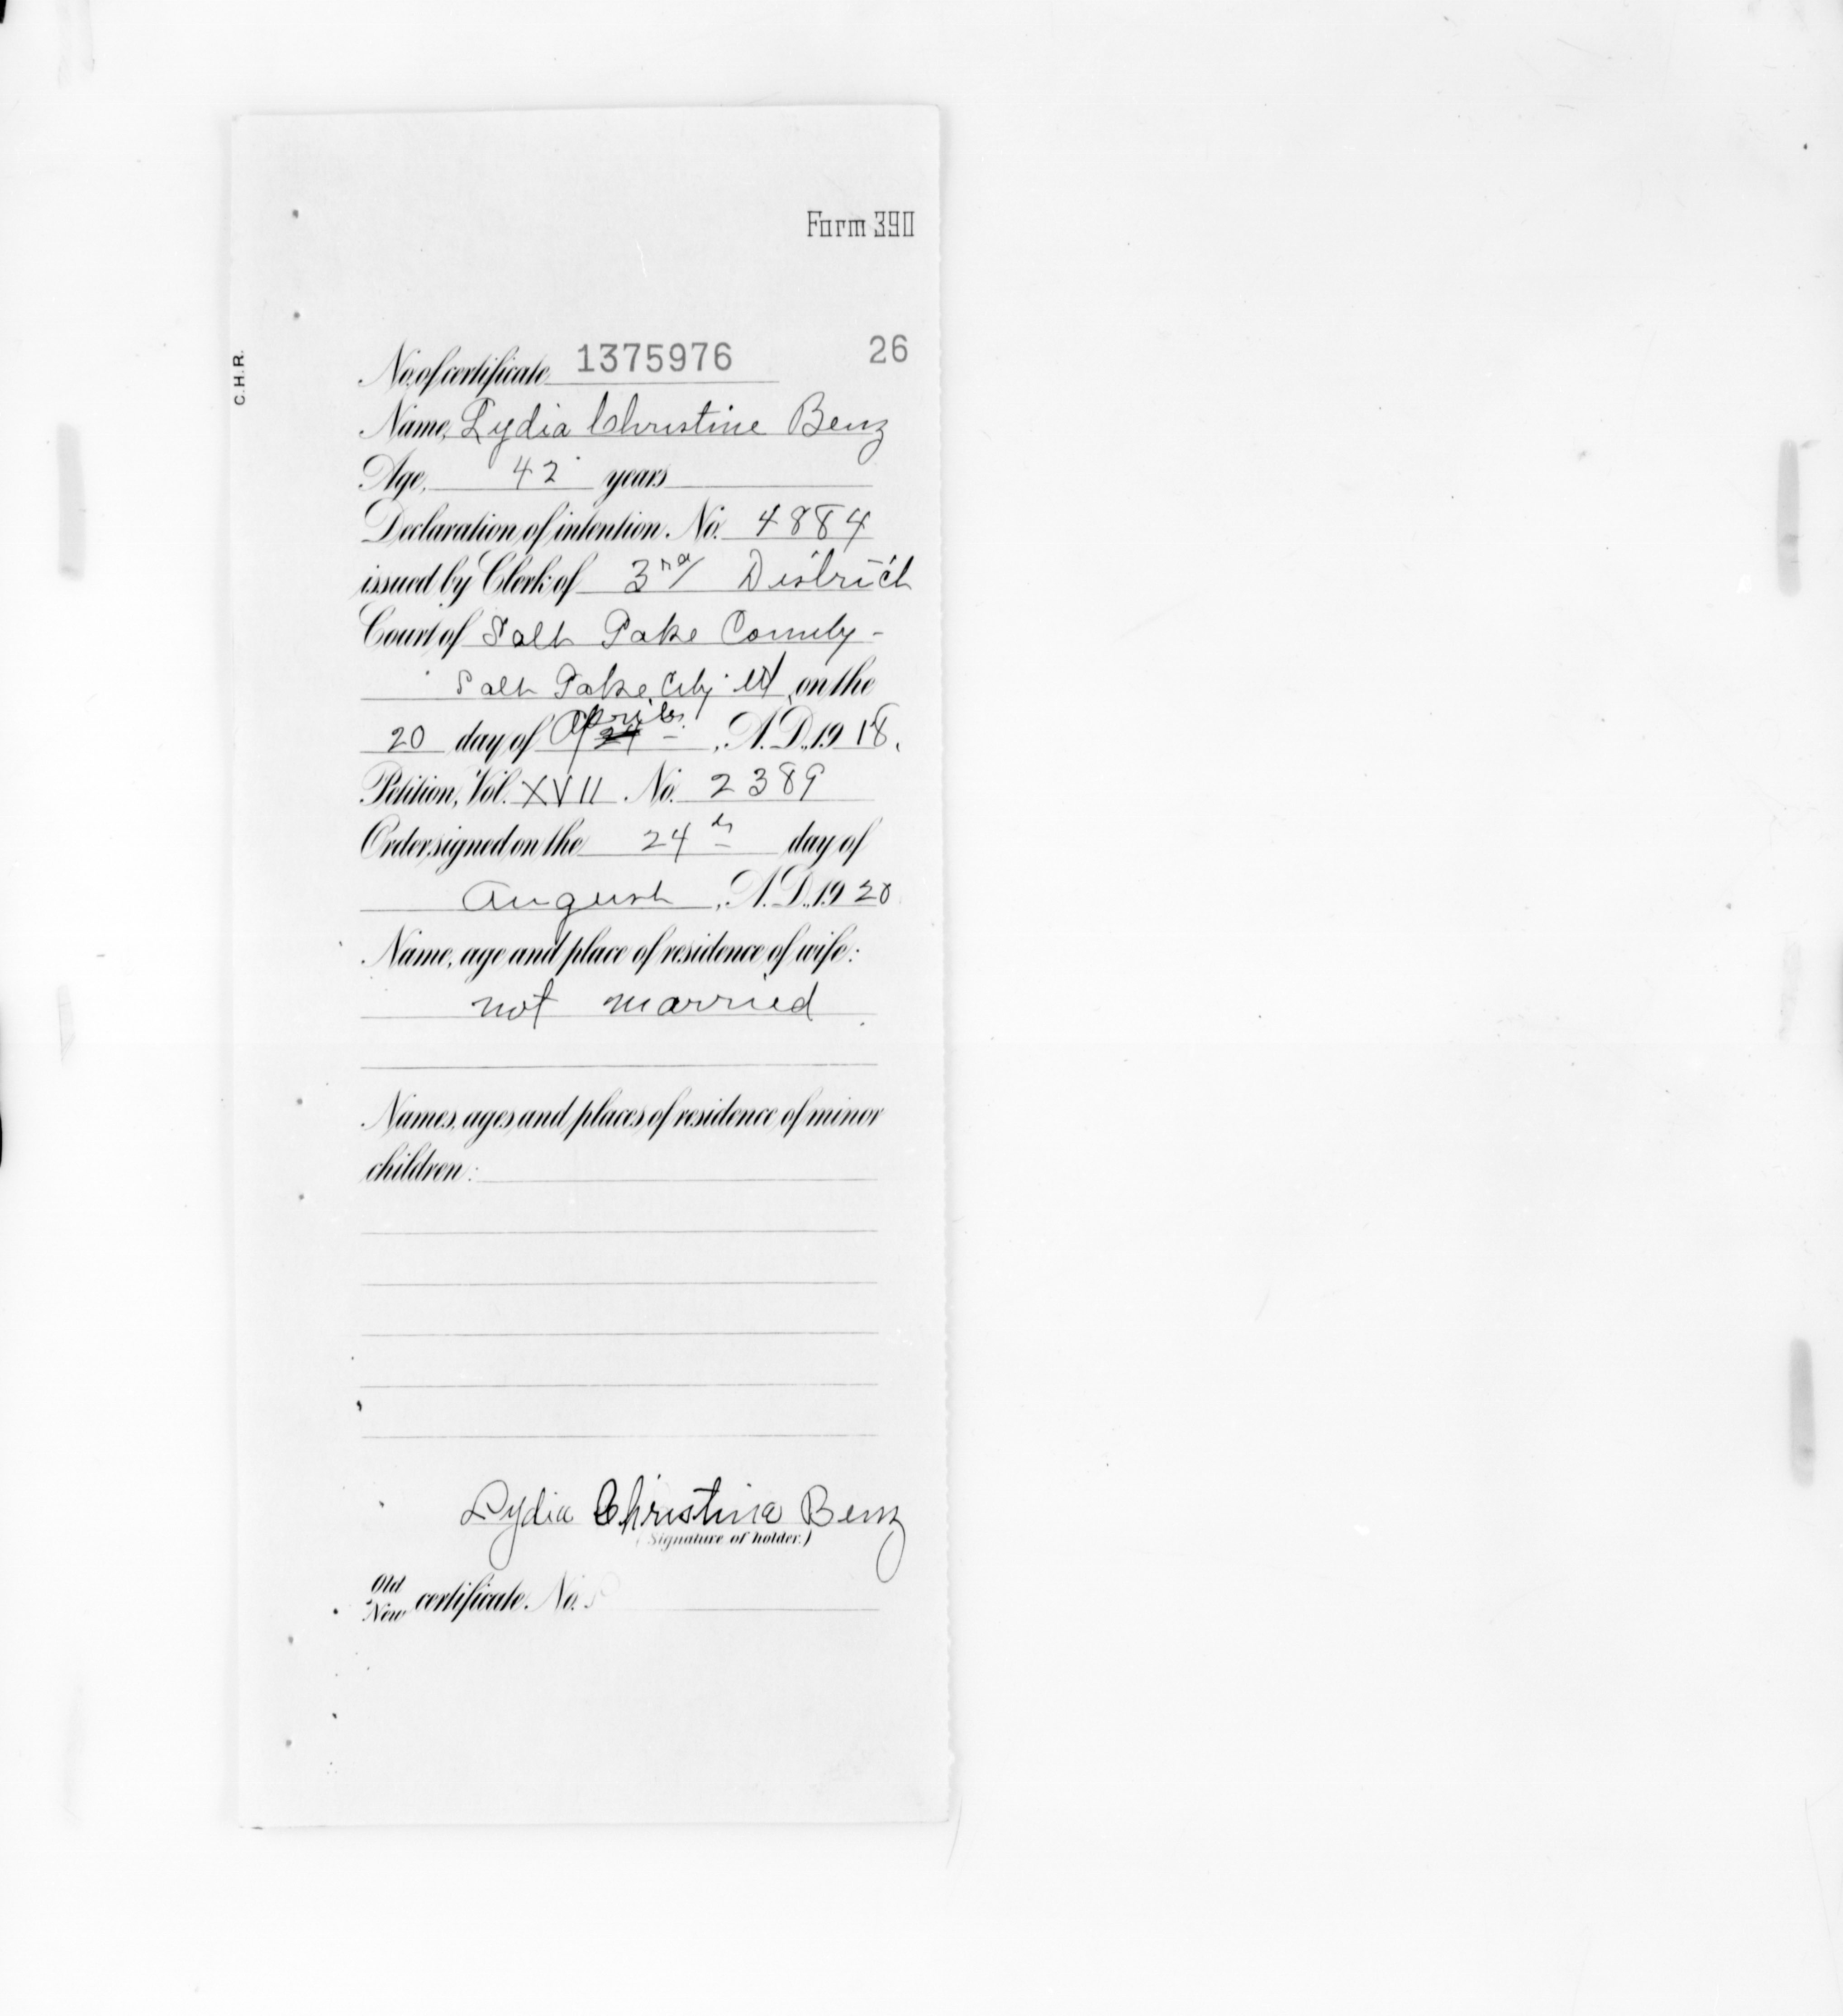 Form 390
C.H.R.
No. of certificate 1375976 26
Name, Lydia Christine Benz
Age, 42 years
Declaration of intention, No. 4884
issued by Clerk of 3rd District
Court of Salt Lake County -
Salt Lake City Ut on the
20 day of April, A.D., 1918.
Petition, Vol. XVII No. 2389
Order signed on the 24th day of
August, A.D., 1920
Name, age and place of residence of wife:
not married
Names, ages and places of residence of minor
children:
Lydia Christine Benz
(Signature of holder.)
Old
New certificate. No.